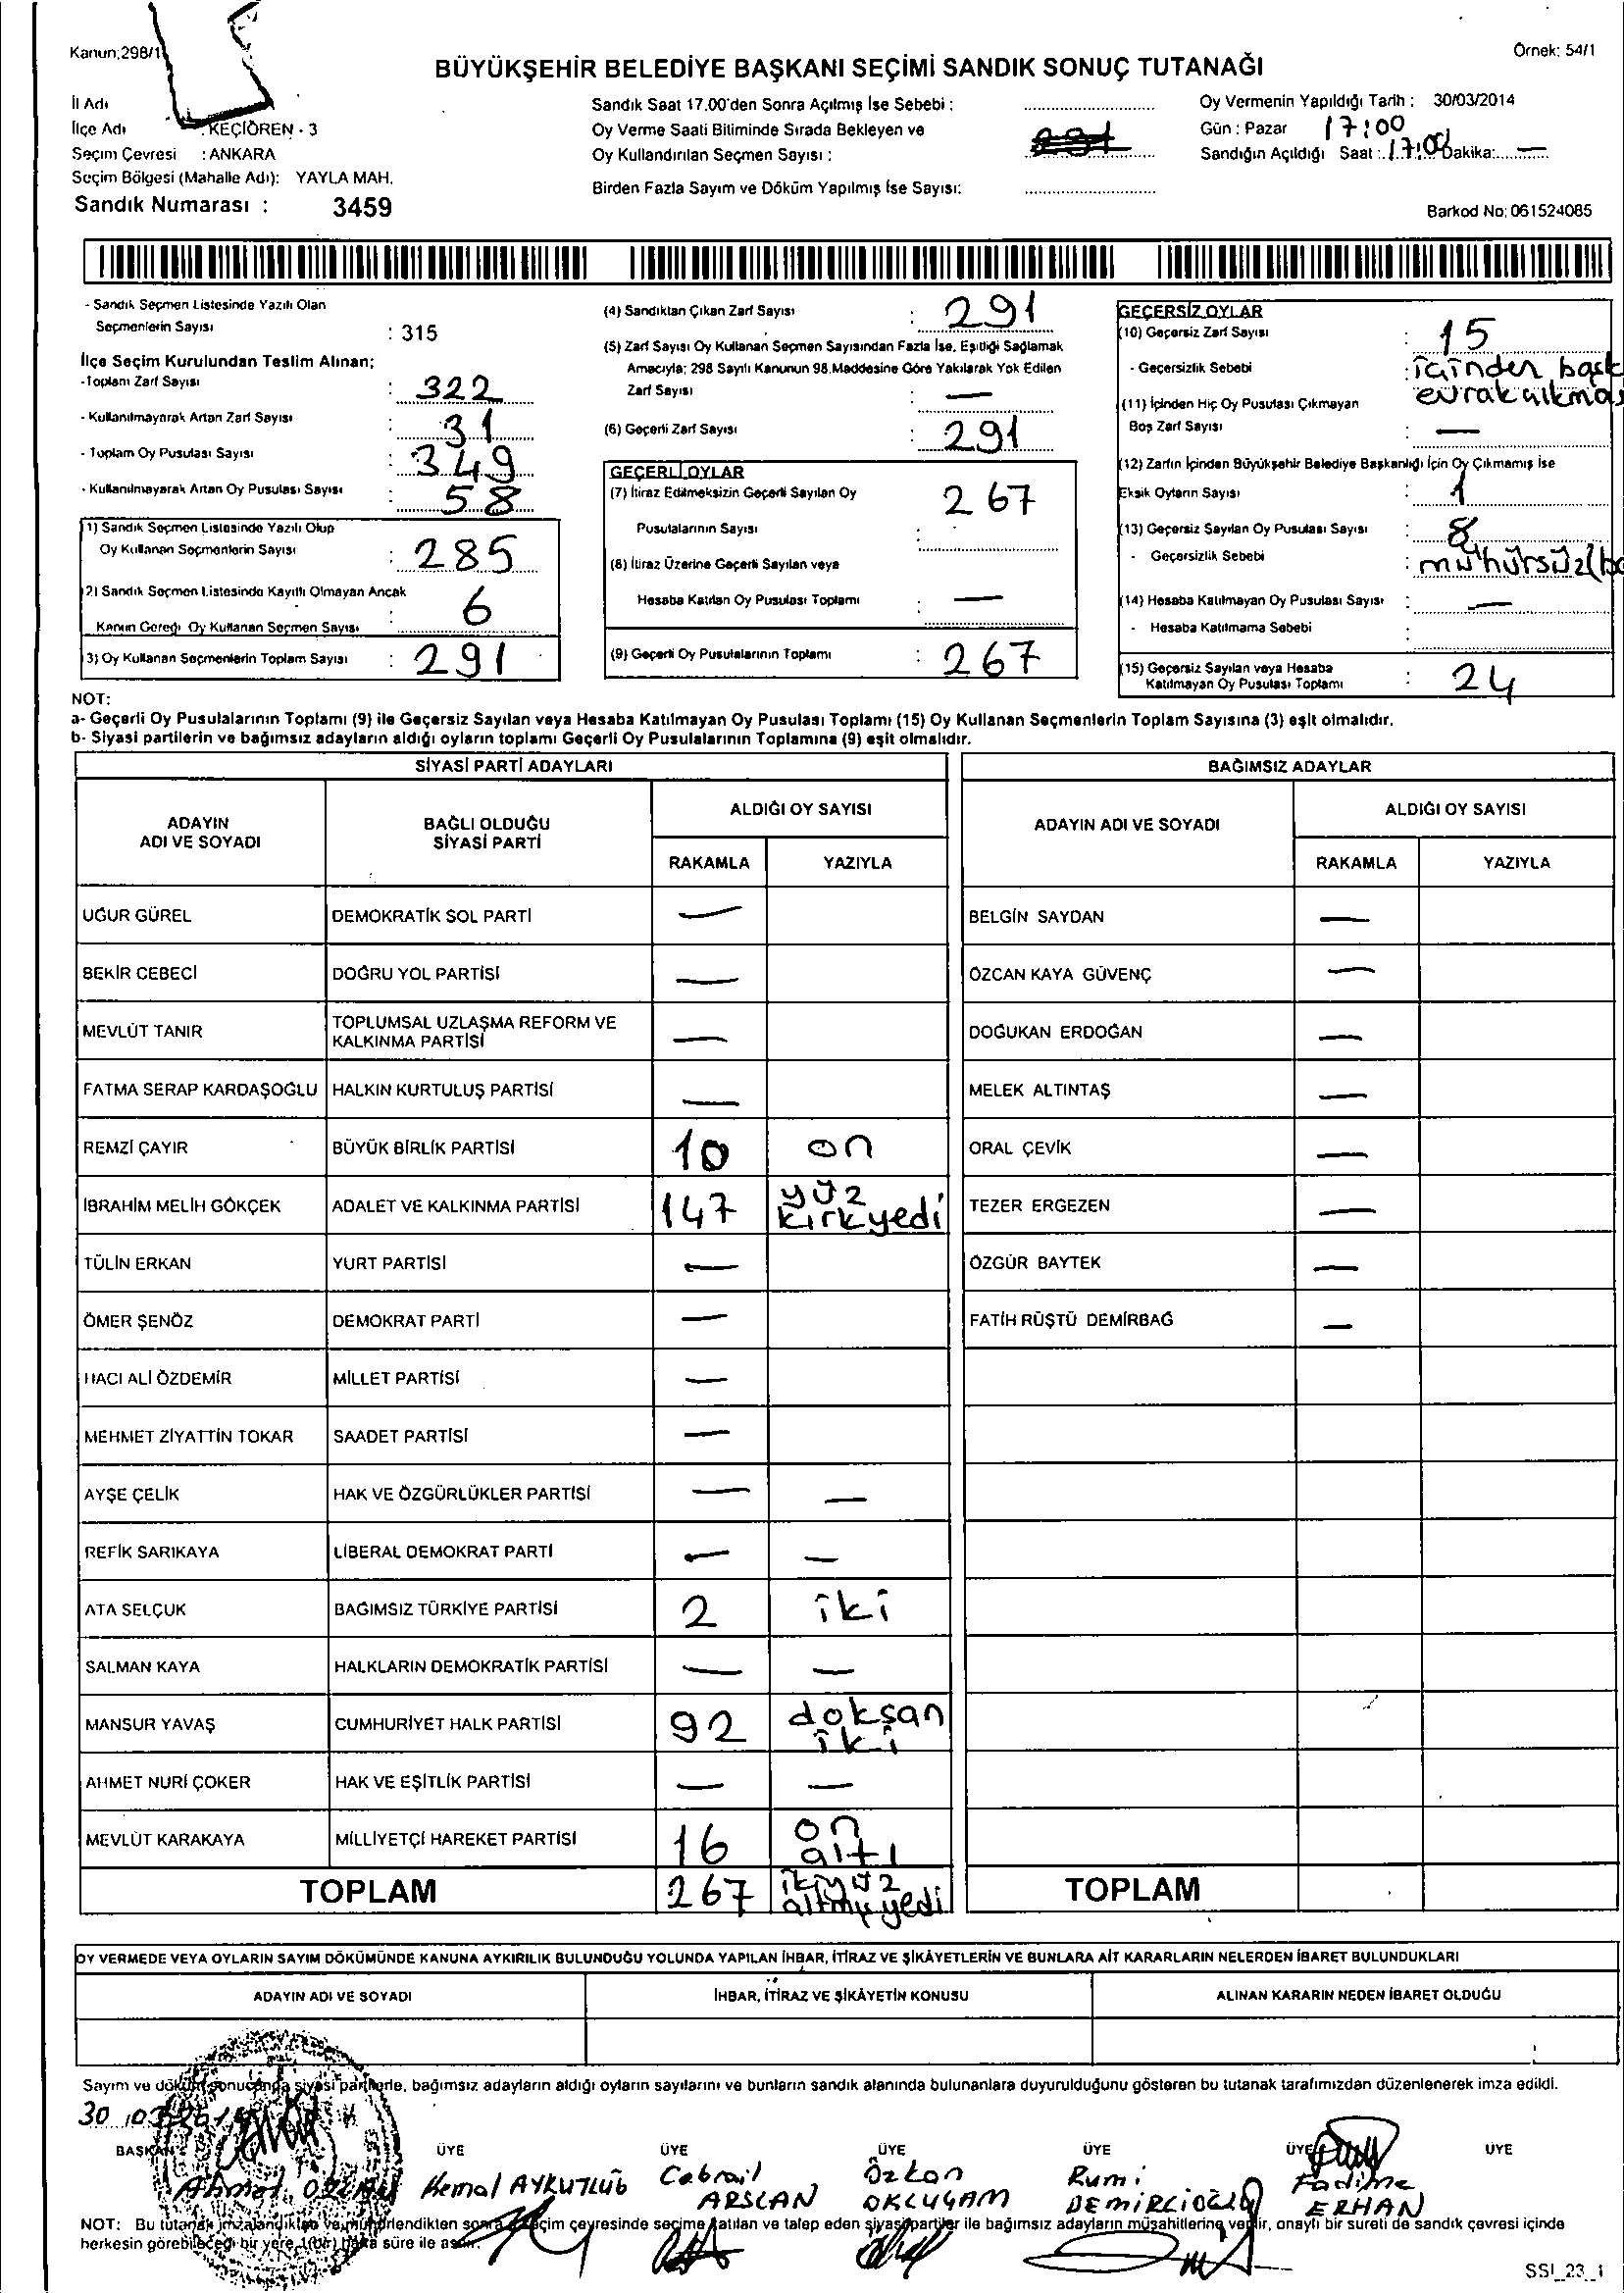 Kanun;298/1
Örnek: 54/1
BÜYÜKŞEHİR BELEDİYE BAŞKANI SEÇİMİ SANDIK SONUÇ TUTANAĞI
İl Adı
İlçe Adı : KEÇİÖREN - 3
Seçim Çevresi : ANKARA
Seçim Bölgesi (Mahalle Adı): YAYLA MAH.
Sandık Numarası : 3459
Sandık Saat 17.00'den Sonra Açılmış İse Sebebi :
Oy Verme Saati Bitiminde Sırada Bekleyen ve
Oy Kullandırılan Seçmen Sayısı :
Birden Fazla Sayım ve Döküm Yapılmış İse Sayısı:
Oy Vermenin Yapıldığı Tarih : 30/03/2014
Gün : Pazar 17:00
Sandığın Açıldığı Saat : 17:00 Dakika: —
Barkod No: 061524085
- Sandık Seçmen Listesinde Yazılı Olan
Seçmenlerin Sayısı : 315
İlçe Seçim Kurulundan Teslim Alınan;
-Toplam Zarf Sayısı : 322
- Kullanılmayarak Artan Zarf Sayısı : 31
- Toplam Oy Pusulası Sayısı : 349
- Kullanılmayarak Artan Oy Pusulası Sayısı : 58
1) Sandık Seçmen Listesinde Yazılı Olup
Oy Kullanan Seçmenlerin Sayısı : 285
2) Sandık Seçmen Listesinde Kayıtlı Olmayan Ancak
Kanun Gereği Oy Kullanan Seçmen Sayısı : 6
3) Oy Kullanan Seçmenlerin Toplam Sayısı : 291
(4) Sandıktan Çıkan Zarf Sayısı : 291
(5) Zarf Sayısı Oy Kullanan Seçmen Sayısından Fazla İse, Eşitliği Sağlamak
Amacıyla; 298 Sayılı Kanunun 98.Maddesine Göre Yakılarak Yok Edilen
Zarf Sayısı : —
(6) Geçerli Zarf Sayısı : 291
GEÇERLİ OYLAR
(7) İtiraz Edilmeksizin Geçerli Sayılan Oy
Pusulalarının Sayısı : 267
(8) İtiraz Üzerine Geçerli Sayılan veya
Hesaba Katılan Oy Pusulası Toplamı : —
(9) Geçerli Oy Pusulalarının Toplamı : 267
GEÇERSİZ OYLAR
(10) Geçersiz Zarf Sayısı : 15
- Geçersizlik Sebebi : içinden başk
evrak çıkmas
(11) İçinden Hiç Oy Pusulası Çıkmayan
Boş Zarf Sayısı : —
(12) Zarfın İçinden Büyükşehir Belediye Başkanlığı İçin Oy Çıkmamış İse
Eksik Oyların Sayısı : 1
(13) Geçersiz Sayılan Oy Pusulası Sayısı : 8
- Geçersizlik Sebebi : mühürsüz(bo
(14) Hesaba Katılmayan Oy Pusulası Sayısı : —
- Hesaba Katılmama Sebebi :
(15) Geçersiz Sayılan veya Hesaba
Katılmayan Oy Pusulası Toplamı : 24
NOT:
a- Geçerli Oy Pusulalarının Toplamı (9) ile Geçersiz Sayılan veya Hesaba Katılmayan Oy Pusulası Toplamı (15) Oy Kullanan Seçmenlerin Toplam Sayısına (3) eşit olmalıdır.
b- Siyasi partilerin ve bağımsız adayların aldığı oyların toplamı Geçerli Oy Pusulalarının Toplamına (9) eşit olmalıdır.
SİYASİ PARTİ ADAYLARI
BAĞIMSIZ ADAYLAR
ADAYIN
ADI VE SOYADI
BAĞLI OLDUĞU
SİYASİ PARTİ
ALDIĞI OY SAYISI
RAKAMLA YAZIYLA
ADAYIN ADI VE SOYADI
ALDIĞI OY SAYISI
RAKAMLA YAZIYLA
UĞUR GÜREL DEMOKRATİK SOL PARTİ — BELGİN SAYDAN —
BEKİR CEBECİ DOĞRU YOL PARTİSİ — ÖZCAN KAYA GÜVENÇ —
MEVLÜT TANIR TOPLUMSAL UZLAŞMA REFORM VE
KALKINMA PARTİSİ — DOĞUKAN ERDOĞAN —
FATMA SERAP KARDAŞOĞLU HALKIN KURTULUŞ PARTİSİ — MELEK ALTINTAŞ —
REMZİ ÇAYIR BÜYÜK BİRLİK PARTİSİ 10 on ORAL ÇEVİK —
İBRAHİM MELİH GÖKÇEK ADALET VE KALKINMA PARTİSİ 147 yüz
kırkyedi TEZER ERGEZEN —
TÜLİN ERKAN YURT PARTİSİ — ÖZGÜR BAYTEK —
ÖMER ŞENÖZ DEMOKRAT PARTİ — FATİH RÜŞTÜ DEMİRBAĞ —
HACI ALİ ÖZDEMİR MİLLET PARTİSİ —
MEHMET ZİYATTİN TOKAR SAADET PARTİSİ —
AYŞE ÇELİK HAK VE ÖZGÜRLÜKLER PARTİSİ — —
REFİK SARIKAYA LİBERAL DEMOKRAT PARTİ — —
ATA SELÇUK BAĞIMSIZ TÜRKİYE PARTİSİ 2 iki
SALMAN KAYA HALKLARIN DEMOKRATİK PARTİSİ — —
MANSUR YAVAŞ CUMHURİYET HALK PARTİSİ 92 doksan
iki
AHMET NURİ ÇOKER HAK VE EŞİTLİK PARTİSİ — —
MEVLÜT KARAKAYA MİLLİYETÇİ HAREKET PARTİSİ 16 on
altı
TOPLAM 267 ikiyüz
altmışyedi TOPLAM
OY VERMEDE VEYA OYLARIN SAYIM DÖKÜMÜNDE KANUNA AYKIRILIK BULUNDUĞU YOLUNDA YAPILAN İHBAR, İTİRAZ VE ŞİKÂYETLERİN VE BUNLARA AİT KARARLARIN NELERDEN İBARET BULUNDUKLARI
ADAYIN ADI VE SOYADI İHBAR, İTİRAZ VE ŞİKÂYETİN KONUSU ALINAN KARARIN NEDEN İBARET OLDUĞU
Sayım ve döküm sonucunda siyasi partilerle, bağımsız adayların aldığı oyların sayılarını ve bunların sandık alanında bulunanlara duyurulduğunu gösteren bu tutanak tarafımızdan düzenlenerek imza edildi.
30
BAŞKAN ÜYE ÜYE ÜYE ÜYE ÜYE ÜYE
Ahmet Kemal AYKUTLUĞ Cebrail
ARSLAN Özkan
OKLUGAM Rumi
DEMİRCİOĞLU Fadime
ERHAN
NOT: Bu tutanak imzalandıktan ve mühürlendikten sonra seçim çevresinde seçime katılan ve talep eden siyasi partiler ile bağımsız adayların müşahitlerine verilir, onaylı bir sureti de sandık çevresi içinde
herkesin görebileceği bir yere 1(bir) hafta süre ile asılır.
SSI_23_1